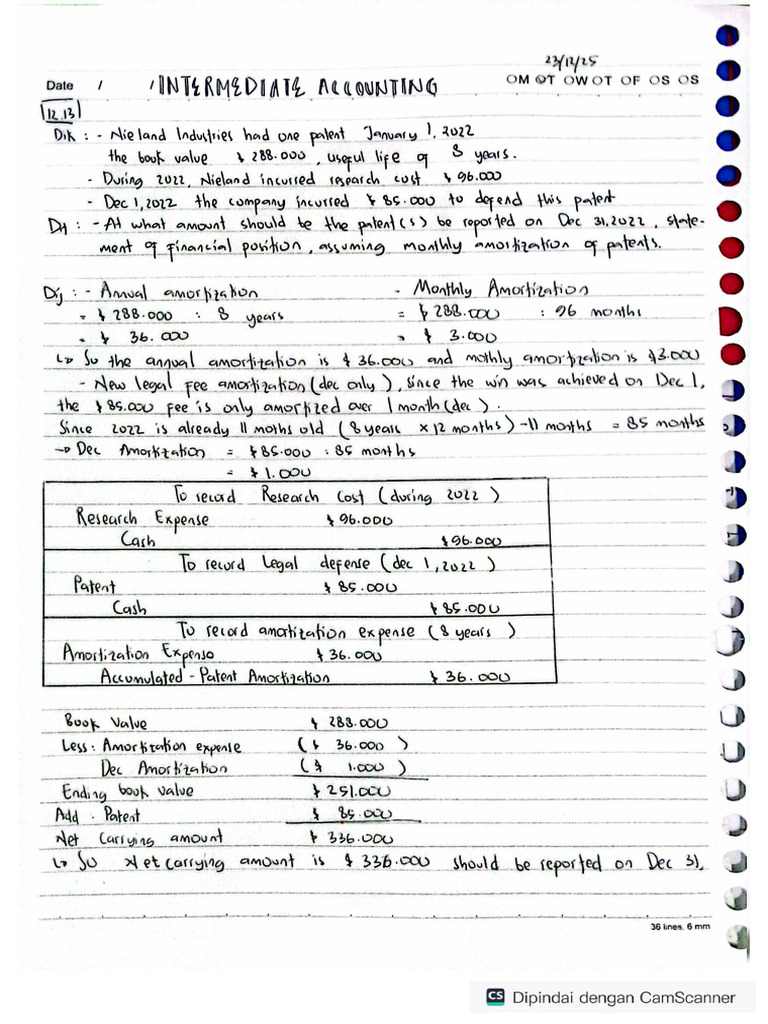 23/12/25
Date / / INTERMEDIATE ACCOUNTING OM OT OW OT OF OS OS
12.13
Dik : - Nieland Industries had one patent January 1, 2022
the book value $ 288.000, useful life of 8 years.
- During 2022, Nieland incurred research cost $ 96.000
- Dec 1, 2022 the company incurred $ 85.000 to defend this patent
Dit : - At what amount should be the patent(s) be reported on Dec 31, 2022, state-
ment of financial position, assuming monthly amortization of patents.
Dij : - Annual amortization - Monthly Amortization
= $ 288.000 : 8 years = $ 288.000 : 96 months
= $ 36.000 = $ 3.000
↳ So the annual amortization is $ 36.000 and mothly amortization is $3.000
- New legal fee amortization (dec only), since the win was achieved on Dec 1,
the $ 85.000 fee is only amortized over 1 month (dec).
Since 2022 is already 11 moths old (8 years × 12 months) - 11 months = 85 months
→ Dec Amortization = $ 85.000 : 85 months
= $ 1.000
To record Research cost (during 2022)
Research Expense $ 96.000
Cash $ 96.000
To record Legal defense (dec 1, 2022)
Patent $ 85.000
Cash $ 85.000
To record amortization expense (8 years)
Amortization Expense $ 36.000
Accumulated - Patent Amortization $ 36.000
Book Value $ 288.000
Less : Amortization expense ( $ 36.000 )
Dec Amortization ( $ 1.000 )
Ending book value $ 251.000
Add : Patent $ 85.000
Net Carrying amount $ 336.000
↳ So Net carrying amount is $ 336.000 should be reported on Dec 31,
36 lines, 6 mm
CS Dipindai dengan CamScanner